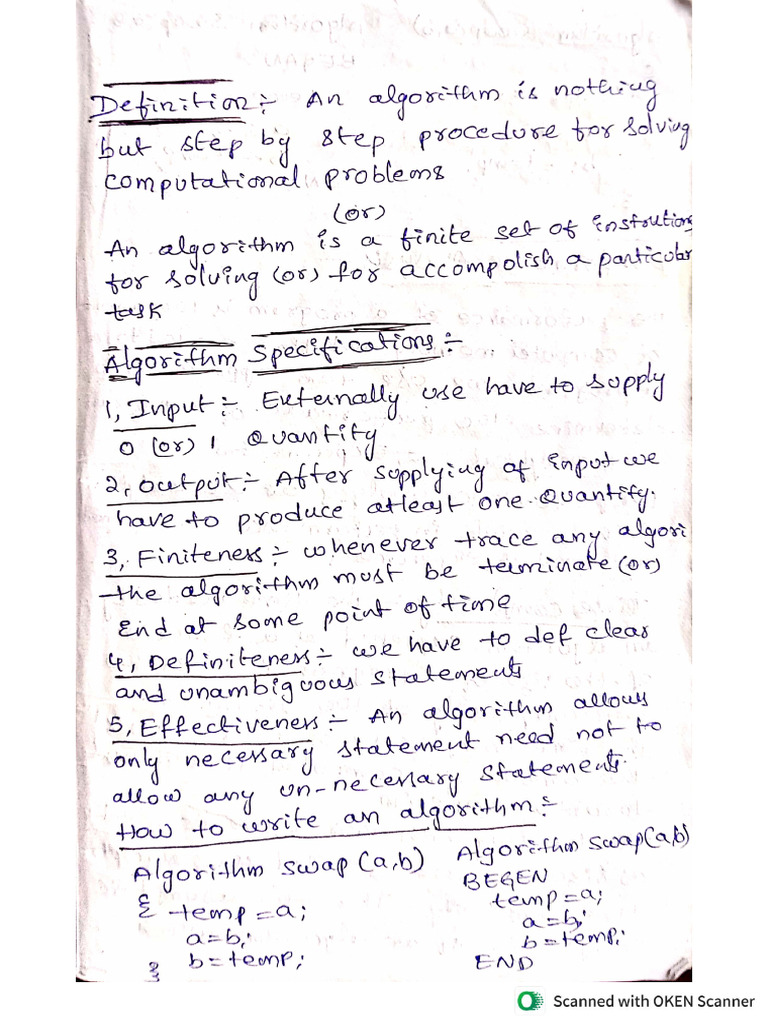 Definition :- An algorithm is nothing
but step by step procedure for solving
computational problems
(or)
An algorithm is a finite set of instrutions
for solving (or) for accompolish a particular
task
Algorithm Specifications :-
1, Input :- Externally use have to supply
0 (or) 1 Quantity
2, output :- After supplying of input we
have to produce atleast one Quantity.
3, Finiteness :- whenever trace any algori
the algorithm must be terminate (or)
End at some point of time
4, Definiteness :- we have to def clear
and unambiguous statements
5, Effectiveness :- An algorithm allows
only necessary statement need not to
allow any un-necessary statements.
How to write an algorithm :-
Algorithm swap (a,b)
{ temp = a;
a = b;
b = temp;
}
Algorithm swap(a,b)
BEGEN
temp = a;
a = b;
b = temp;
END
Scanned with OKEN Scanner